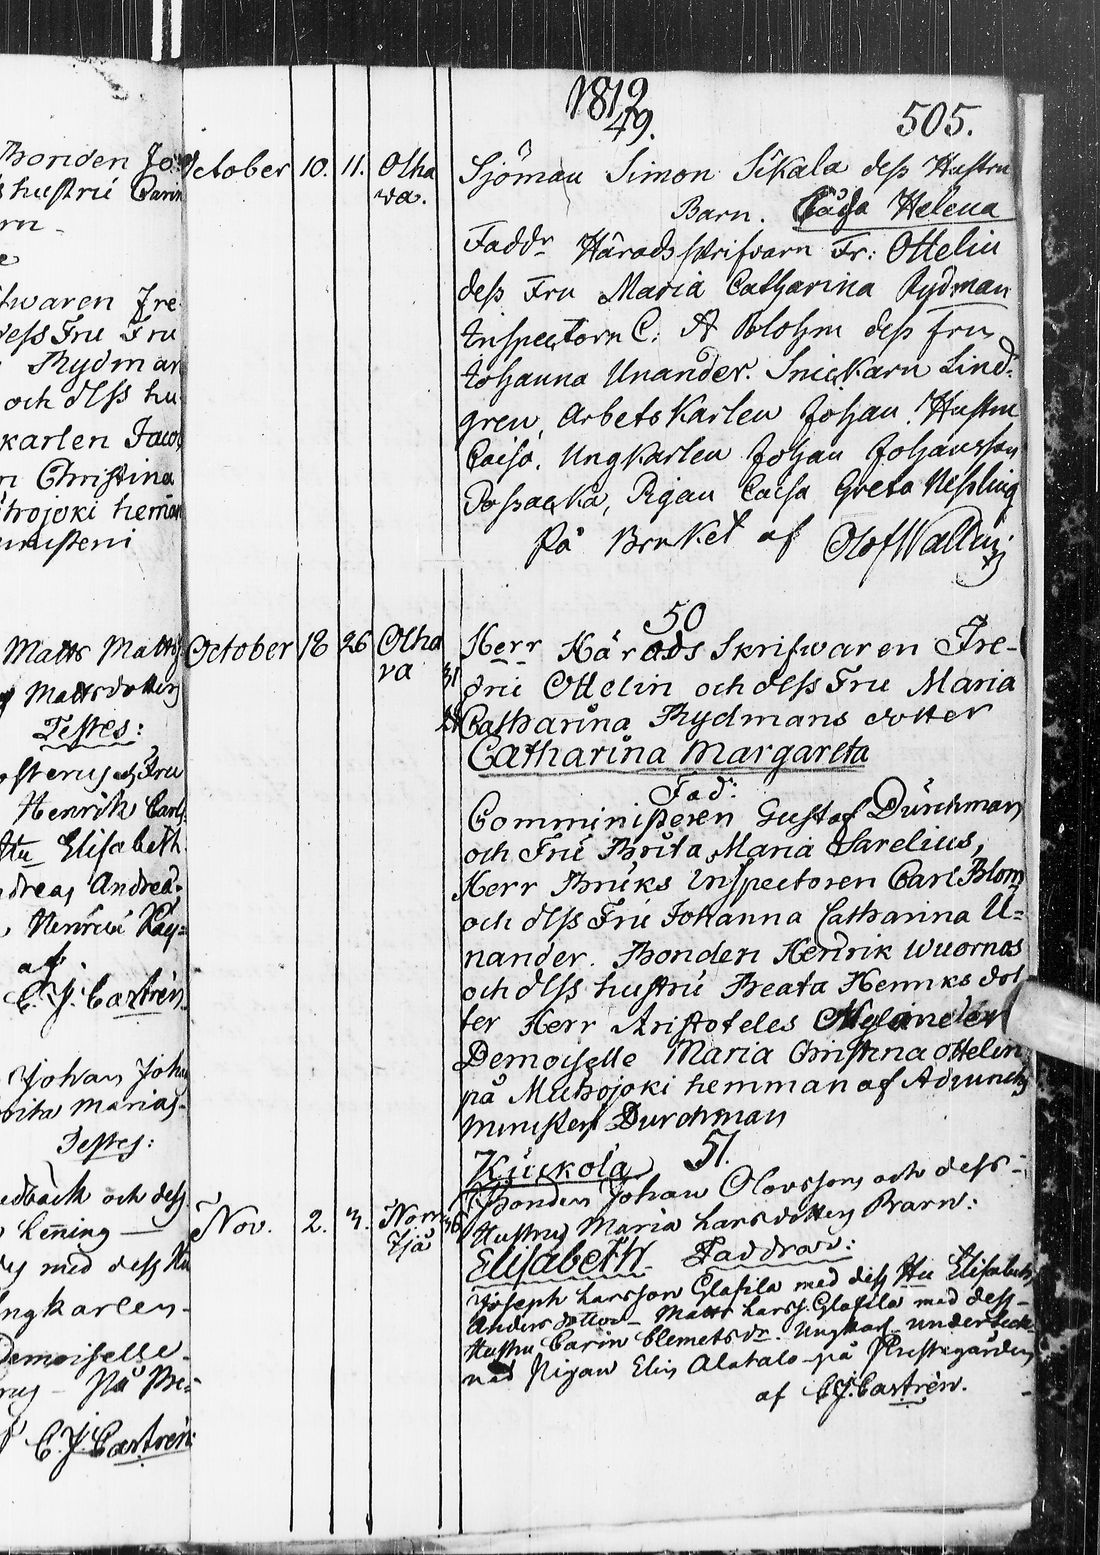 Bonden Jo
s hustru Carin
rn
e
fwaren Fre
dess Fru Fru
Rydman
och dess hu
karlen Jacob
n Christina
hojoki heman
unisteni
Matts Matts
Mattsdotter
Testes:
osterus och Fru
Henrik Carls
Hu Elisabeth
ndreas Andreæ
Henrici Kay=
af
C. J. Castrén.
Johan Joha
Brita Marias
Testes:
edbäck och dess
Lening
med dess Hu
ngkarlen
Demoiselle
på Pre=
C. J. Castrén
1812
49. 505.
October 10. 11. Olha
va.
Sjöman Simon Sikala dess Hustru
Barn. Caisa Helena
Faddr Häradsskrifvarn Fr: Ottelin
dess Fru Maria Catharina Rydman
Inspectorn C. A Blohm dess Fru
Johanna Unander. Snickarn Lind=
gren, Arbetskarlen Johan Hustru
Caisa. Ungkarlen Johan Johansson
Possacka, Pigan Caisa Greta Nessling
På Bruket af Olof Wallin
50
October 18 26 Olha
va
31
Herr Härads Skrifwaren Fre-
dric Ottelin och dess Fru Maria
Catharina Rydmans dotter
Catharina Margareta
Fad:
Comministeren Gustaf Durchman
och Fru Brita Maria Sarelius,
Herr Bruks Inspectoren Carl Blom
och dess Fru Johanna Catharina U=
nander. Bonden Henrik Wuornos
och dess hustru Beata Henriks dot
ter Herr Aristoteles Mylander
Demoiselle Maria Christina Ottelin
på Muhojoki hemman af Adjuncts
ministern Durchman
51.
Kuckola
Nov. 2. 3. Norr
Ijå
36
Bonden Johan Olovsson och dess
Hustru Maria Larsdotters Barn:
Elisabeth Faddrar:
Joseph Larsson Glafila med dess Hu Elisabeth
Anders dotter - Matts Larss. Glafila med dess
Hustru Carin Clemets dr. Ungkarl undertech=
nad Pigan Elin Alatalo på Prestegården
af C. J. Castrén.